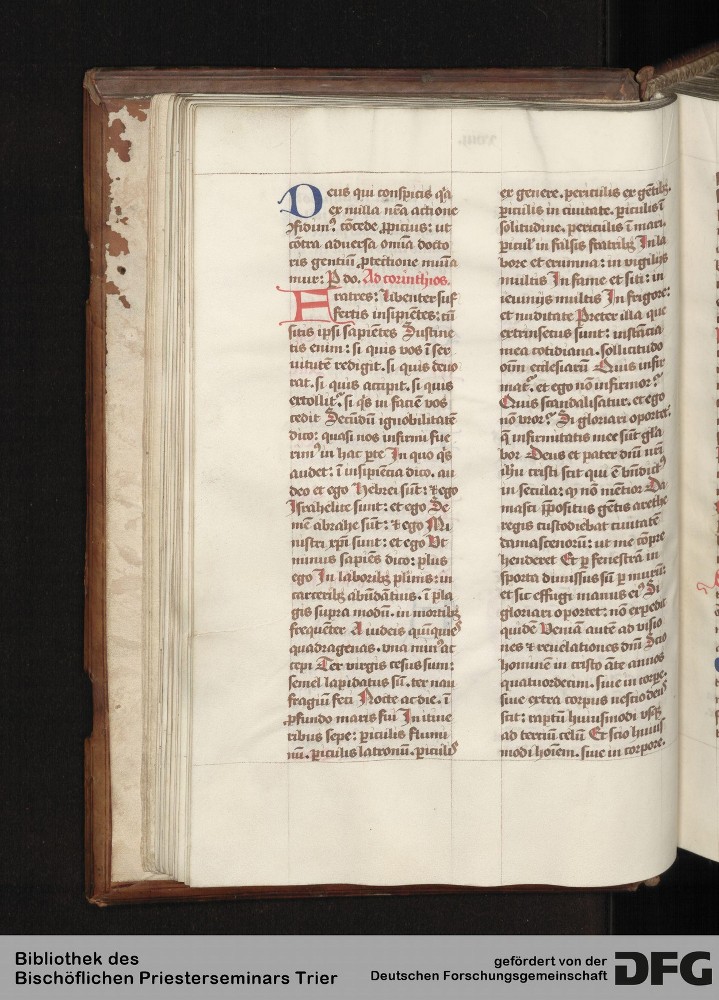 Deus qui conspicis q͛a
ex nulla nr̄a actione
ꝯfidim᷒. cōcede ꝓpicius: ut
cōtra aduersa om̄ia docto
ris gentiū ꝓtectione mūia
mur: P do. Ad corinthios.
Fratres: libenter suf
fertis insipiētes: cū
sitis ipsi sapiētes Sustine
tis enim: si quis vos ī ser
uitutē redigit. si quis deuo
rat. si quis accipit. si quis
extollit᷑. si q͛s in faciē vos
cedit Secūdū ignobilitatē
dico: quasi nos infirmi fue
rim᷒ in hac ꝑte In quo q͛s
audet: ī insipiēcia dico. au
deo et ego Hebrei sūt: ⁊ ego
Israhelite sunt: et ego Se
mē abrahe sūt: ⁊ ego Mi
nistri xp̄i sunt: et ego Vt
minus sapiēs dico: plus
ego In laborib⁊ plimis: in
carcerib⁊ abūdātius. ī pla
gis supra modū. in mortib⁊
frequēter A iudeis quīquies
quadragenas. vna min᷒ ac
cepi Ter virgis cesus sum:
semel lapidatus sū. ter nau
fragiū feci Nocte ac die. ī
ꝓfundo maris fui In itine
ribus sepe: ꝑiculis flumi
nū. ꝑiculis latronū. ꝑiculis
ex genere. periculis ex gētib⁊.
ꝑiculis in ciuitate. ꝑiculis ī
solitudine. periculis ī mari.
ꝑicul᷒ in falsis fratrib⁊ In la
bore et erumna: in vigiliis
multis In fame et siti: in
ieiuniis multis In frigore:
et nuditate Preter illa que
extrinsecus sunt: instācia
mea cotidiana. sollicitudo
oīm ecclesiarū Quis infir
mat᷑. et ego nō infirmor?
Quis scandalisatur. et ego
nō vror? Si gloriari oportet:
q̄ infirmitatis mee sūt gl̄a
bor Deus et pater dn̄i nr̄i
ih̄u cristi scit qui ē bn̄dict᷒
in secula: q͛ nō mētior Da
masci p̄positus gētis arethe
regis custodiebat ciuitatē
damascenorū: ut me cōpre
henderet Et ꝑ fenestrā in
sporta dimissus sū ꝑ murū:
et sic effugi manus ei᷒ Si
gloriari oportet: nō expedit
quidē Veniā autē ad visio
nes ⁊ reuelationes dn̄i Scio
hominē in cristo āte annos
quatuordecim. siue in corꝑe.
siue extra corpus nescio deus
scit: raptū huiusmodi vsq⁊
ad terciū celū Et scio huius
modi hoīem. siue in corpore.
Bibliothek des
Bischöflichen Priesterseminars Trier
gefördert von der
Deutschen Forschungsgemeinschaft
DFG